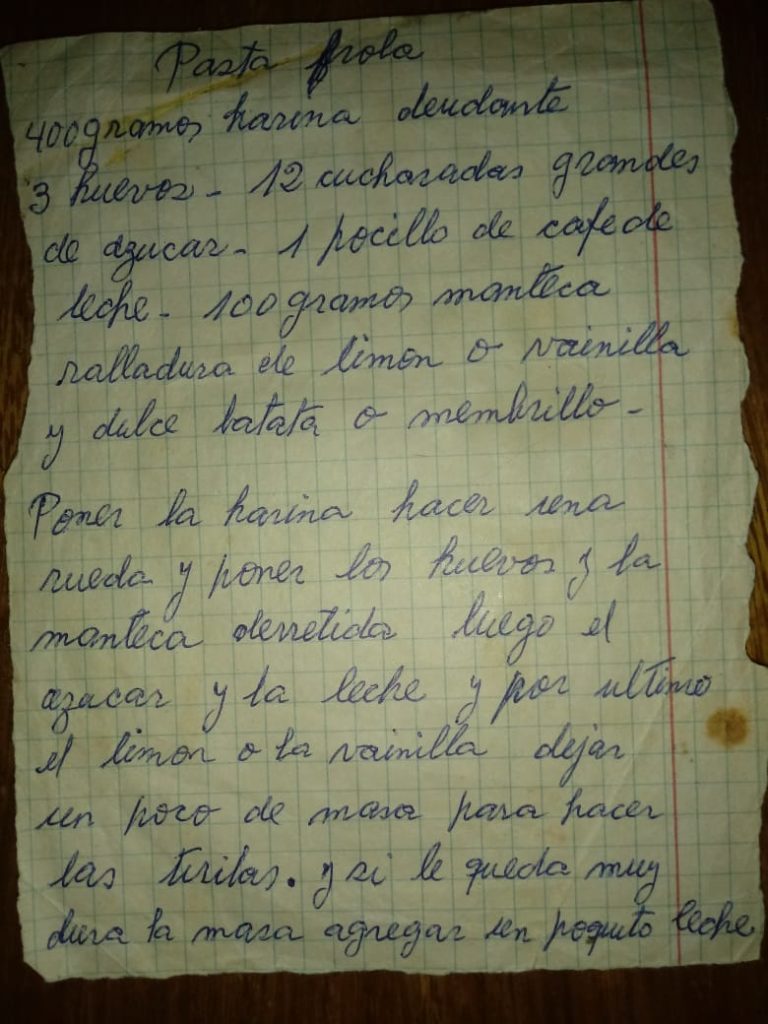 Pasta frola
400 gramos harina deudante
3 huevos - 12 cucharadas grandes
de azucar - 1 pocillo de cafe de
leche - 100 gramos manteca
ralladura de limon o vainilla
y dulce batata o membrillo -
Poner la harina hacer una
rueda y poner los huevos y la
manteca derretida luego el
azucar y la leche y por ultimo
el limon o la vainilla dejar
un poco de masa para hacer
las tiritas. y si le queda muy
dura la masa agregar un poquito leche